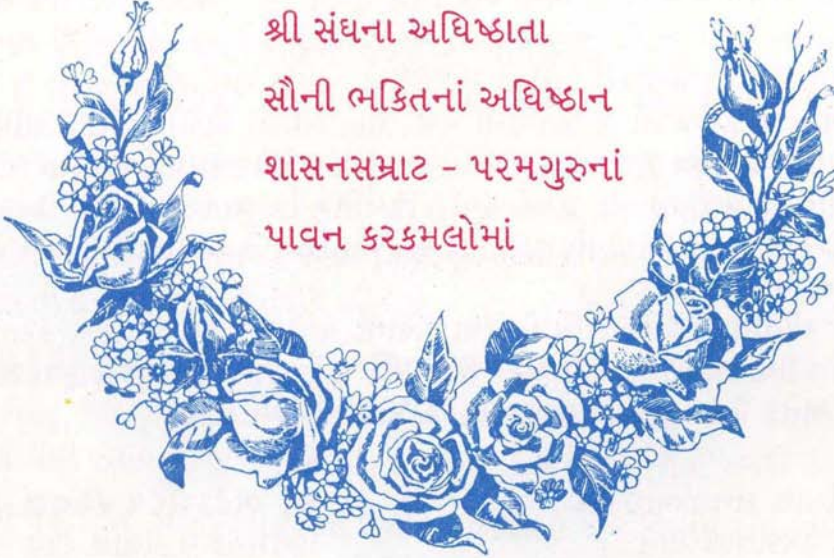 શ્રી સંઘના અધિષ્ઠાતા
સૌની ભકિતનાં અધિષ્ઠાન
શાસનસમ્રાટ - પરમગુરુનાં
પાવન કરકમલોમાં